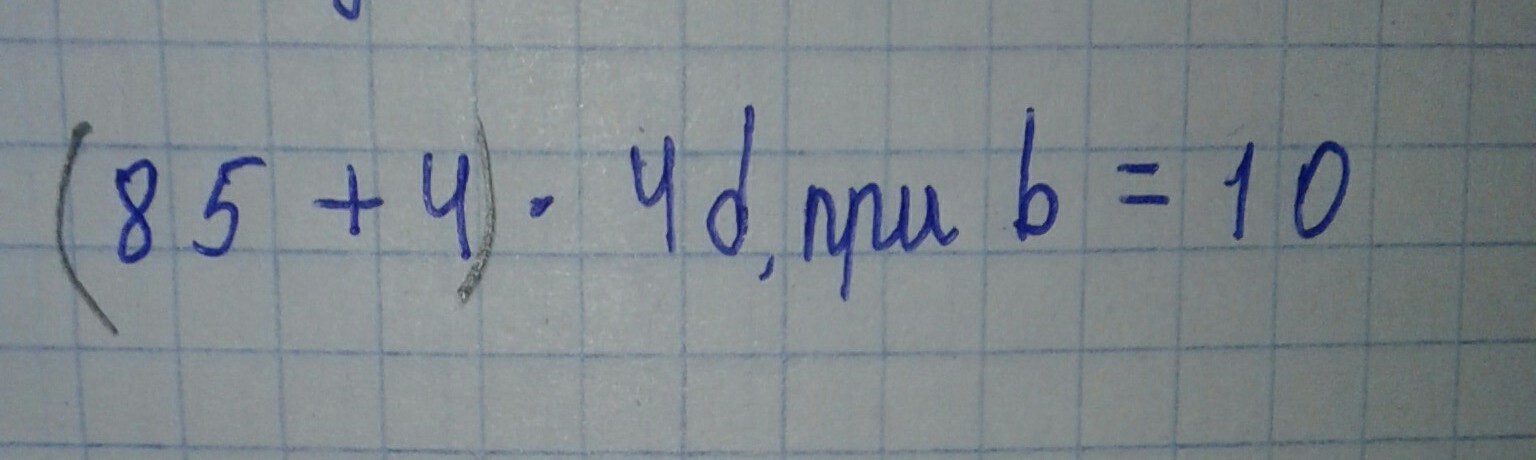 (85 + 4) · 4d, при b = 10